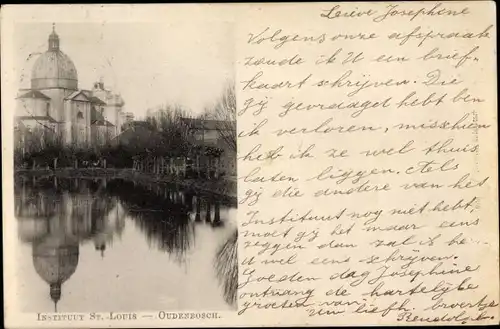 Lieve Josephine
Volgens onze afspraak
zoude ik U een brief-
kaart schrijven. Die
gij gevraaget hebt ben
ik verloren, misschien
heb ik ze wel thuis
laten liggen. Als
gij die andere van het
Instituut nog niet hebt,
moet gij het maar eens
zeggen dan zal ik be
U wel eens schrijven.
Goeden dag Josephine
ontvang de hartelijke
groeten van, uw liefh. broertje
INSTITUUT ST. LOUIS — OUDENBOSCH.